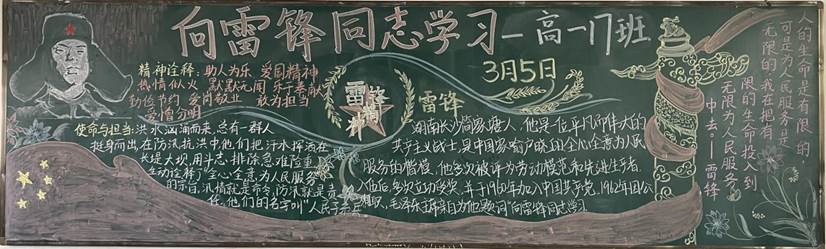 向雷锋同志学习
一高一17班
3月5日
精神诠释:助人为乐 爱国精神
热情似火 默默无闻 乐于奉献
勤俭节约 爱岗敬业 敢为担当
爱憎分明
雷锋
精神
雷锋
使命与担当:洪水汹涌而来,总有一群人
挺身而出,在防汛抗洪中他们把汗水挥洒在
长堤大坝,用斗志排除急难险重,
生动诠释了"全心全意为人民服务"
的宗旨,汛情就是命令,防汛就是责
任,他们的名字叫"人民子弟兵"
湖南长沙简家塘人,他是一位平凡而伟大的
共产主义战士,是中国家喻户晓的全心全意为人民
服务的楷模,他多次被评为劳动模范和先进生产者,
入伍后多次立功受奖,并于1960年加入中国共产党,1962年因公
殉职,毛泽东主席亲自为他题词"向雷锋同志学习"
人的生命是有限的
可是为人民服务是
无限的,我在把有
限的生命投入到
无限为人民服务
中去——雷锋